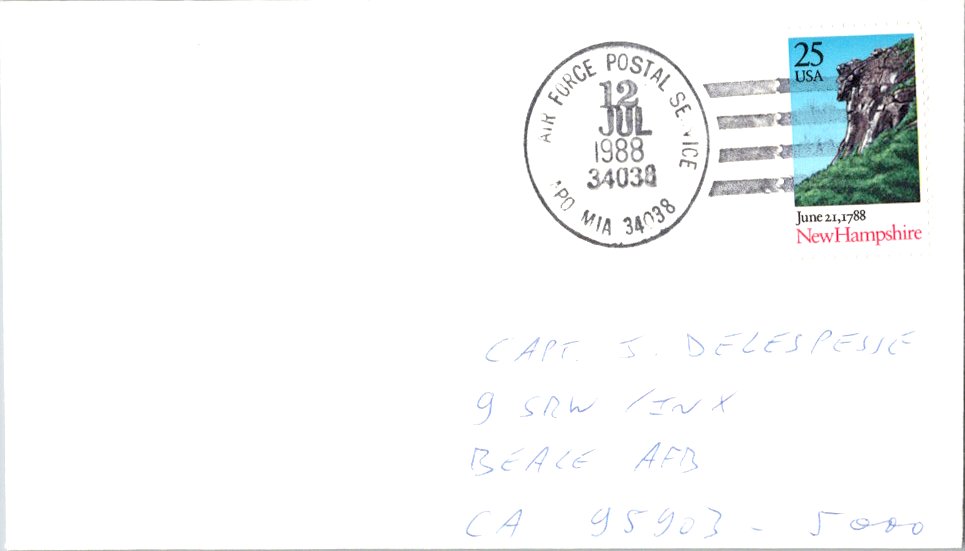 AIR FORCE POSTAL SERVICE
12
JUL
1988
34038
APO MIA 34038
25
USA
June 21, 1788
New Hampshire
CAPT. J. DELESPESSE
9 SRW /INX
BEALE AFB
CA 95903 - 5000